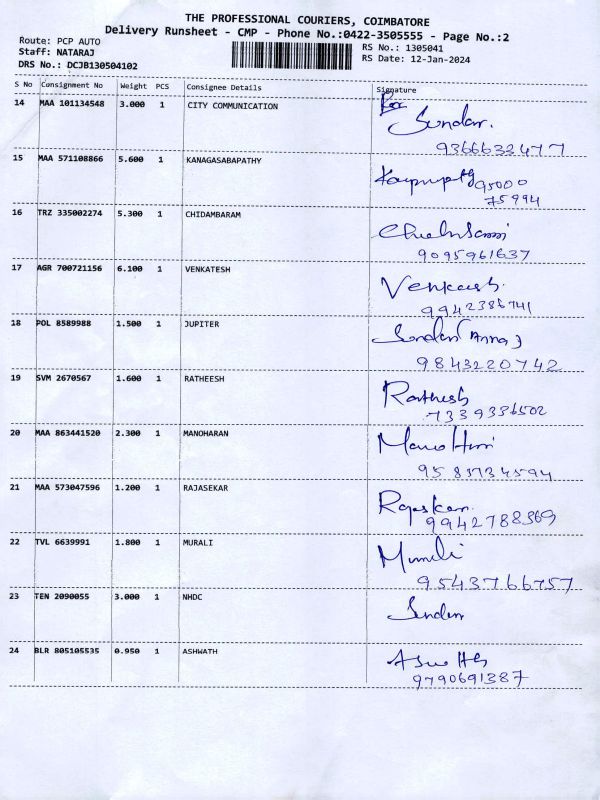 THE PROFESSIONAL COURIERS, COIMBATORE
Delivery Runsheet - CMP - Phone No.:0422-3505555 - Page No.:2
Route: PCP AUTO
Staff: NATARAJ
DRS No.: DCJB130504102
RS No.: 1305041
RS Date: 12-Jan-2024
S No Consignment No Weight PCS Consignee Details Signature
14 MAA 101134548 3.000 1 CITY COMMUNICATION Sundar.
9366632477
15 MAA 571108866 5.600 1 KANAGASABAPATHY
95000
75994
16 TRZ 335002274 5.300 1 CHIDAMBARAM
9095961637
17 AGR 700721156 6.100 1 VENKATESH
9942386741
18 POL 8589988 1.500 1 JUPITER
9843220742
19 SVM 2670567 1.600 1 RATHEESH Ratheesh
7339336502
20 MAA 863441520 2.300 1 MANOHARAN
21 MAA 573047596 1.200 1 RAJASEKAR
9942788369
22 TVL 6639991 1.800 1 MURALI Murali
9543766757
23 TEN 2090055 3.000 1 NHDC Sundar
24 BLR 805105535 0.950 1 ASHWATH
9790691387